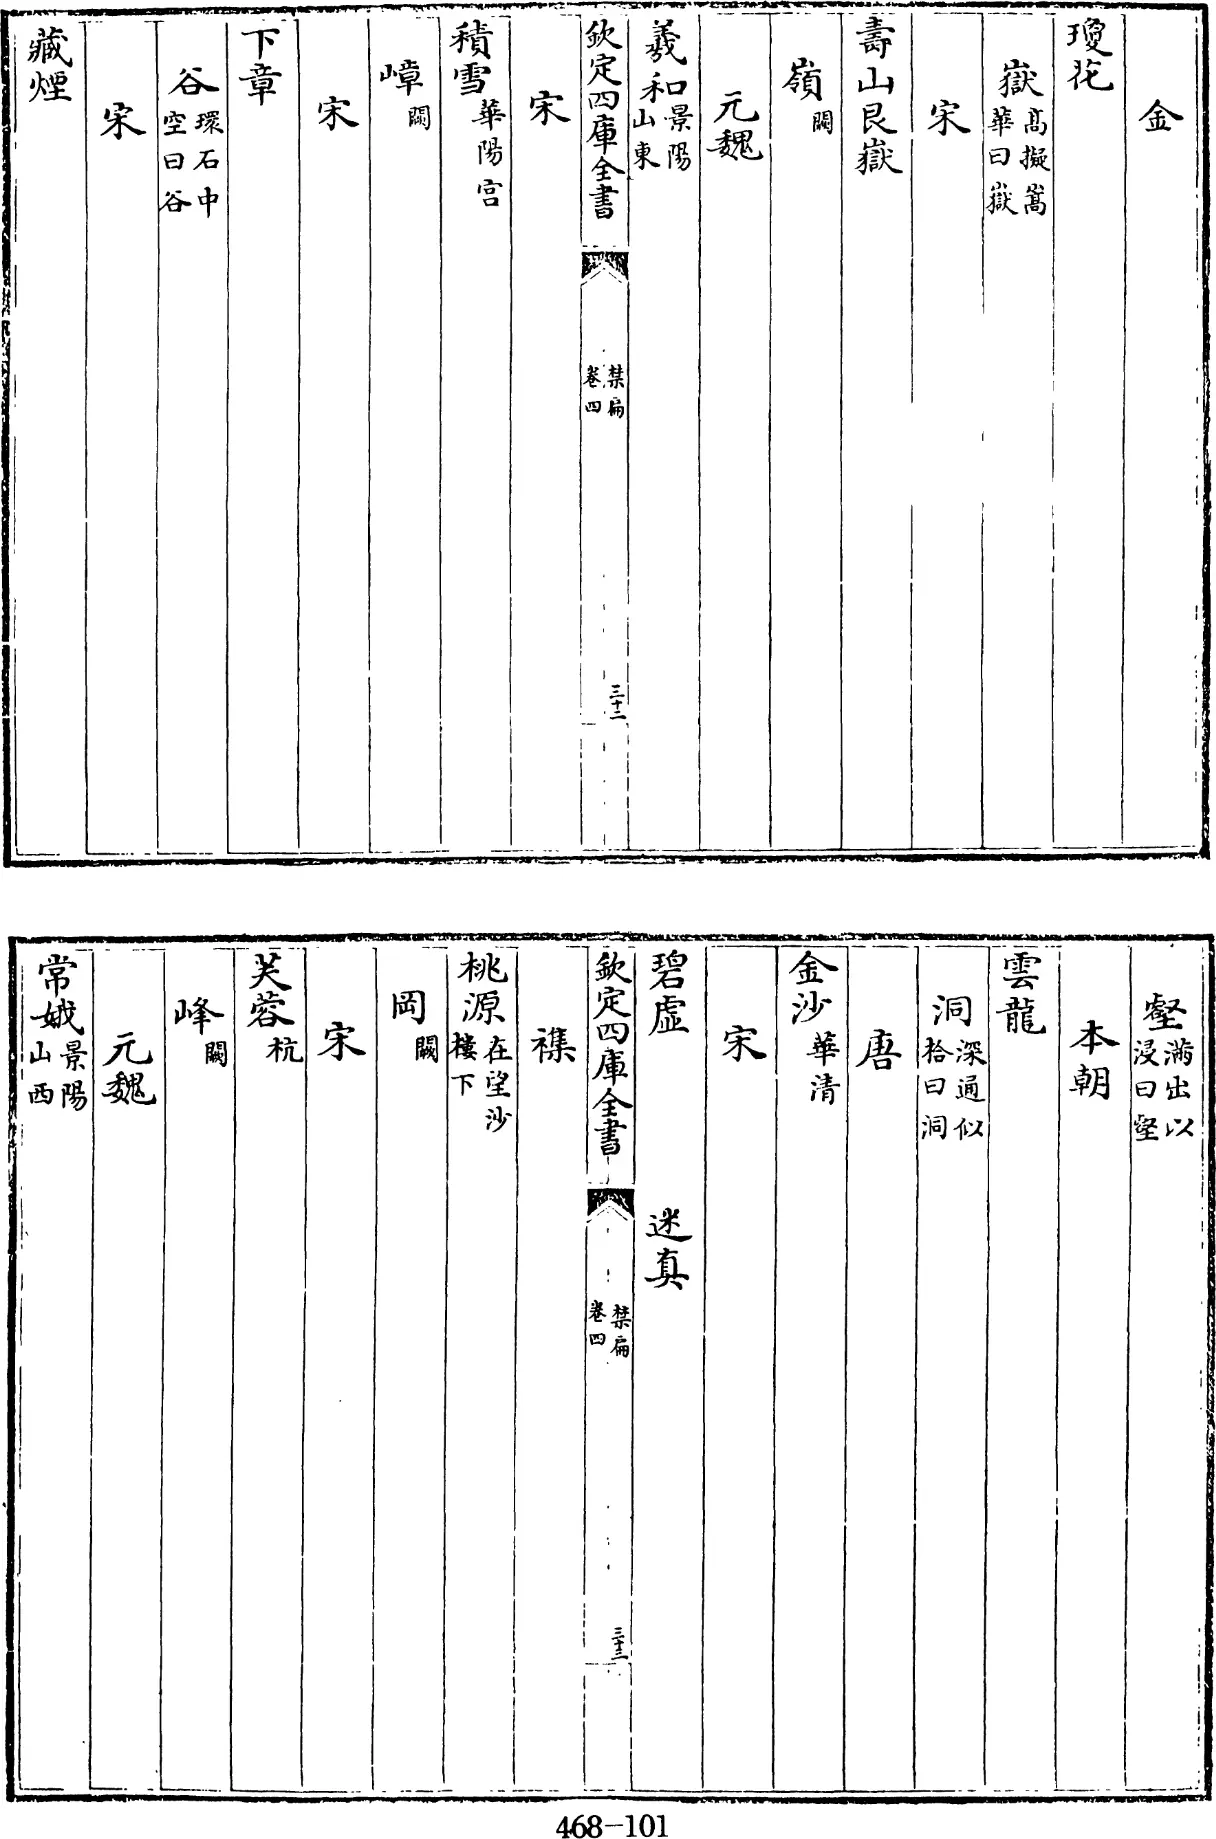 金
瓊花
嶽高擬嵩華曰嶽
宋
壽山艮嶽
嶺闕
元魏
羲和景陽山東
欽定四庫全書
禁扁
卷四
三十二
宋
積雪華陽宮
嶂闕
宋
下章
谷環石中空曰谷
宋
藏煙
壑瀰出以浸曰壑
本朝
雲龍
洞深通似峆曰洞
唐
金沙華清
宋
碧虛 迷真
欽定四庫全書
禁扁
卷四
三十三
襍
桃源在望沙樓下
岡闕
宋
芙蓉杭
峰闕
元魏
常娥景陽山西
468-101